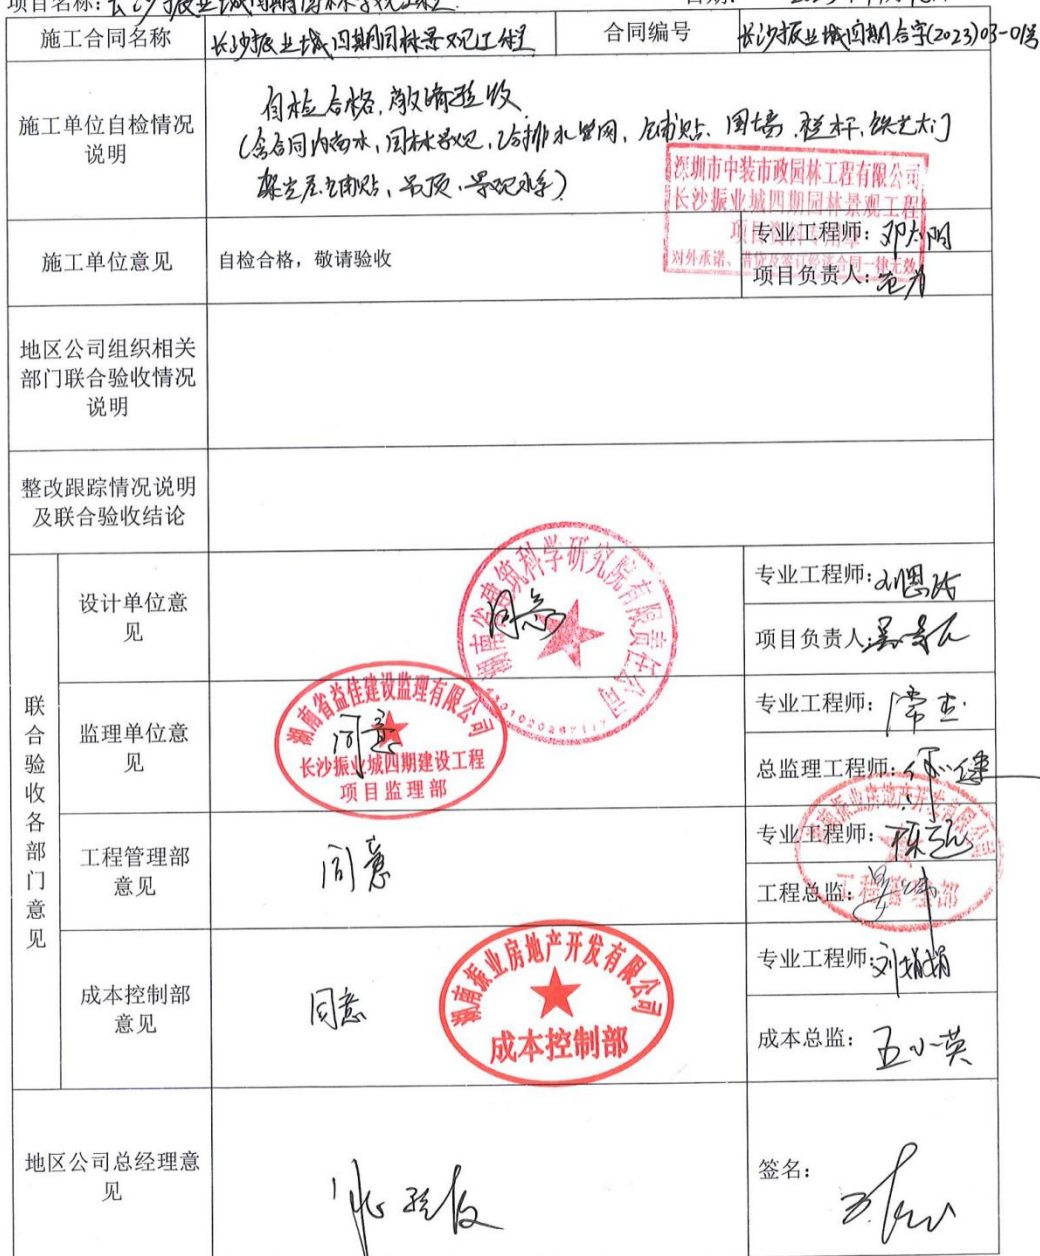 项目名称：长沙振业城四期园林景观工程
施工合同名称
长沙振业城四期园林景观工程
合同编号
长沙振业城四期合字(2023)03-01号
施工单位自检情况
说明
自检合格，敬请验收
(含合同内雨水，园林景观，给排水管网，铺贴、围墙、栏杆，铁艺大门
架空层铺贴、吊顶、景观水系)
深圳市中装市政园林工程有限公司
长沙振业城四期园林景观工程
对外承诺、借贷及签订经济合同一律无效
施工单位意见
自检合格，敬请验收
专业工程师：邓志明
项目负责人：
地区公司组织相关
部门联合验收情况
说明
整改跟踪情况说明
及联合验收结论
联合验收各部门意见
设计单位意
见
同意
湖南省建筑科学研究院有限责任公司
专业工程师：
项目负责人
监理单位意
见
同意
湖南省益佳建设监理有限公司
长沙振业城四期建设工程
项目监理部
专业工程师：常杰
总监理工程师：
工程管理部
意见
同意
专业工程师：
工程总监：
湖南振业房地产开发有限公司
工程管理部
成本控制部
意见
同意
湖南振业房地产开发有限公司
成本控制部
专业工程师：刘娟娟
成本总监：王小英
地区公司总经理意
见
签名：